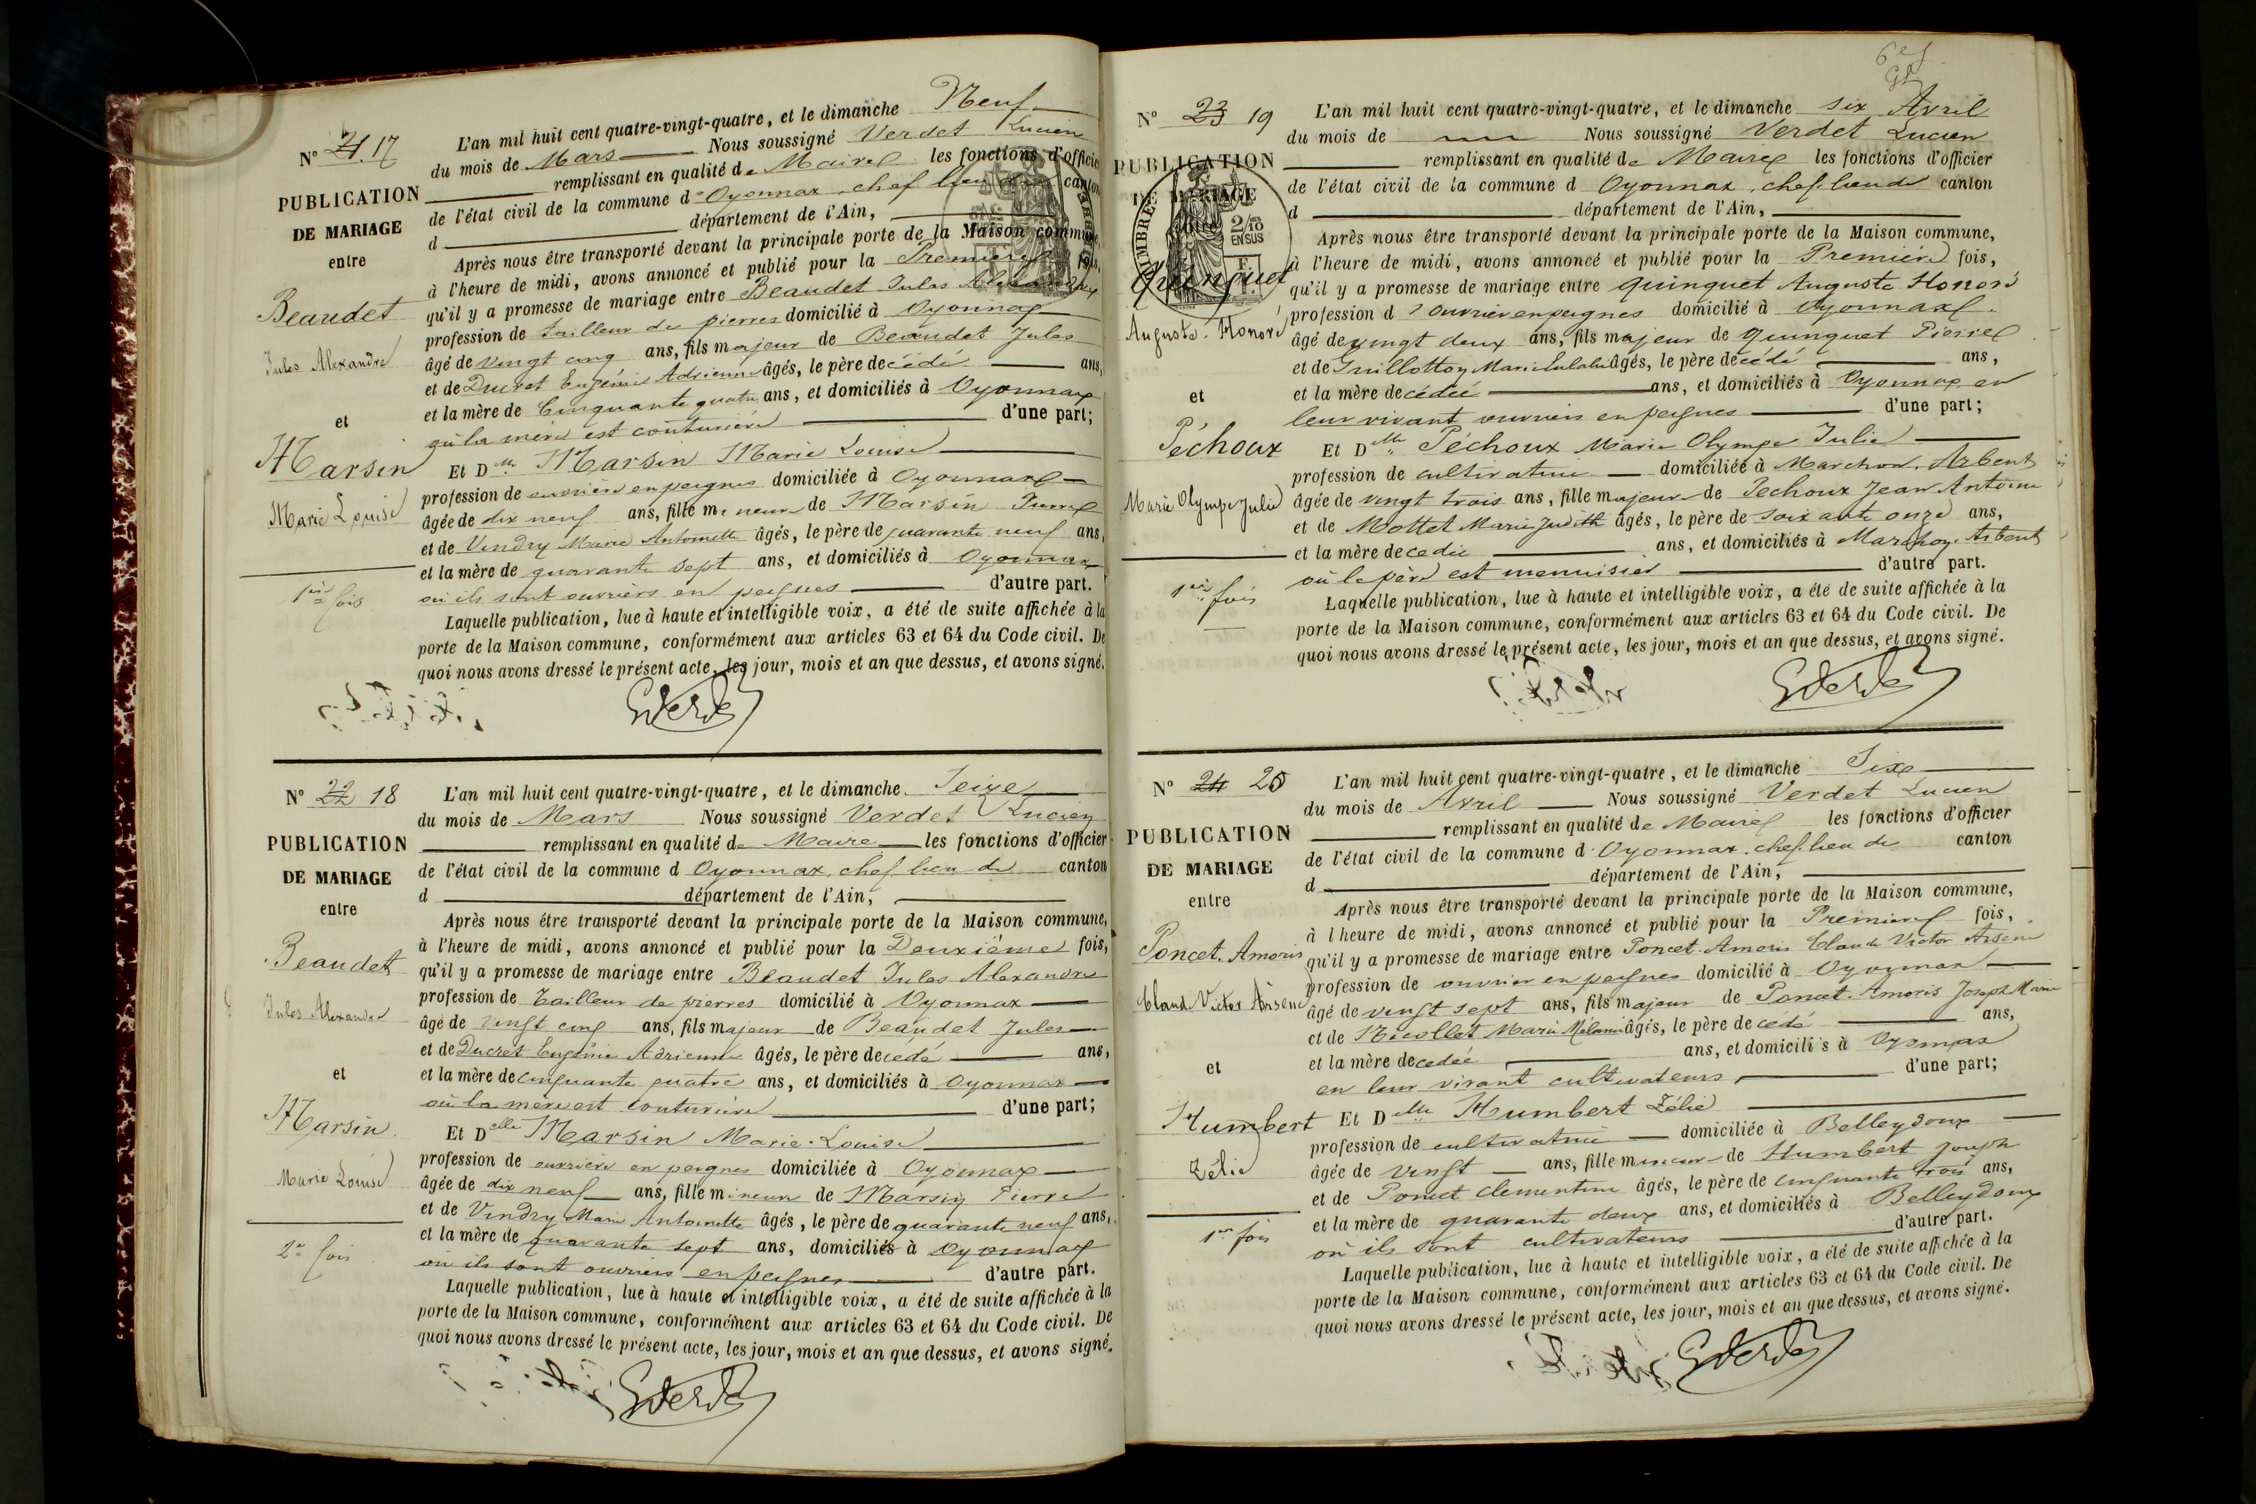 N° 21 17
PUBLICATION
DE MARIAGE
entre
Beaudet
Jules Alexandre
et
Marsin
Marie Louise
1ère fois
L'an mil huit cent quatre-vingt-quatre, et le dimanche Neuf
du mois de Mars Nous soussigné Verdet Lucien
remplissant en qualité de Maire les fonctions d'officier
de l'état civil de la commune d'Oyonnax, chef lieu de canton
d département de l'Ain,
Après nous être transporté devant la principale porte de la Maison commune,
à l'heure de midi, avons annoncé et publié pour la Première fois,
qu'il y a promesse de mariage entre Beaudet Jules Alexandre
profession de tailleur de pierres domicilié à Oyonnax
âgé de vingt cinq ans, fils majeur de Beaudet Jules
et de Ducret Eugénie Adrienne âgés, le père décédé ans,
et la mère de Cinquante quatre ans, et domiciliés à Oyonnax
où la mère est couturière d'une part;
Et Dlle Marsin Marie Louise
profession de ouvrière en peignes domiciliée à Oyonnax
âgée de dix neuf ans, fille mineure de Marsin Pierre
et de Vendry Marie Antoinette âgés, le père de quarante neuf ans,
et la mère de quarante sept ans, et domiciliés à Oyonnax
où ils sont ouvriers en peignes d'autre part.
Laquelle publication, lue à haute et intelligible voix, a été de suite affichée à la
porte de la Maison commune, conformément aux articles 63 et 64 du Code civil. De
quoi nous avons dressé le présent acte, les jour, mois et an que dessus, et avons signé.
N° 22 18
PUBLICATION
DE MARIAGE
entre
Beaudet
Jules Alexandre
et
Marsin
Marie Louise
2e fois
L'an mil huit cent quatre-vingt-quatre, et le dimanche Seize
du mois de Mars Nous soussigné Verdet Lucien
remplissant en qualité de Maire les fonctions d'officier
de l'état civil de la commune d Oyonnax, chef lieu de canton
d département de l'Ain,
Après nous être transporté devant la principale porte de la Maison commune,
à l'heure de midi, avons annoncé et publié pour la Deuxième fois,
qu'il y a promesse de mariage entre Beaudet Jules Alexandre
profession de Tailleur de pierres domicilié à Oyonnax
âgé de vingt cinq ans, fils majeur de Beaudet Jules
et de Ducret Eugénie Adrienne âgés, le père décédé ans,
et la mère de cinquante quatre ans, et domiciliés à Oyonnax
où la mère est couturière d'une part;
Et Delle Marsin Marie Louise
profession de ouvrière en peignes domiciliée à Oyonnax
âgée de dix neuf ans, fille mineure de Marsin Pierre
et de Vendry Marie Antoinette âgés, le père de quarante neuf ans,
et la mère de quarante sept ans, domiciliés à Oyonnax
où ils sont ouvriers en peignes d'autre part.
Laquelle publication, lue à haute et intelligible voix, a été de suite affichée à la
porte de la Maison commune, conformément aux articles 63 et 64 du Code civil. De
quoi nous avons dressé le présent acte, les jour, mois et an que dessus, et avons signé.
N° 23 19
PUBLICATION
DE MARIAGE
entre
TIMBRES
2/10
EN SUS
Quinquet
Auguste Honoré
et
Péchoux
Marie Olympe Julie
1ère fois
L'an mil huit cent quatre-vingt-quatre, et le dimanche six Avril
du mois de Nous soussigné Verdet Lucien
remplissant en qualité de Maire les fonctions d'officier
de l'état civil de la commune d Oyonnax, chef lieu de canton
d département de l'Ain,
Après nous être transporté devant la principale porte de la Maison commune,
à l'heure de midi, avons annoncé et publié pour la Première fois,
qu'il y a promesse de mariage entre Quinquet Auguste Honoré
profession d'ouvrier en peignes domicilié à Oyonnax
âgé de vingt deux ans, fils majeur de Quinquet Pierre
et de Guillotton Marie Eulalie âgés, le père décédé ans,
et la mère décédée ans, et domiciliés à Oyonnax en
leur vivant ouvriers en peignes d'une part;
Et Dlle Péchoux Marie Olympe Julie
profession de cultivatrice domiciliée à Marchon, Arbent
âgée de vingt trois ans, fille majeure de Péchoux Jean Antoine
et de Mottet Marie Judith âgés, le père de soixante onze ans,
et la mère décédée ans, et domiciliés à Marchon, Arbent
où le père est menuisier d'autre part.
Laquelle publication, lue à haute et intelligible voix, a été de suite affichée à la
porte de la Maison commune, conformément aux articles 63 et 64 du Code civil. De
quoi nous avons dressé le présent acte, les jour, mois et an que dessus, et avons signé.
N° 24 20
PUBLICATION
DE MARIAGE
entre
Poncet-Amoris
Claude Victor Arsène
et
Humbert
Zélie
1ère fois
L'an mil huit cent quatre-vingt-quatre, et le dimanche Six
du mois de Avril Nous soussigné Verdet Lucien
remplissant en qualité de Maire les fonctions d'officier
de l'état civil de la commune d'Oyonnax, chef lieu de canton
d département de l'Ain,
Après nous être transporté devant la principale porte de la Maison commune,
à l'heure de midi, avons annoncé et publié pour la Première fois,
qu'il y a promesse de mariage entre Poncet-Amoris Claude Victor Arsène
profession de ouvrier en peignes domicilié à Oyonnax
âgé de vingt sept ans, fils majeur de Poncet-Amoris Joseph Marie
et de Nicollet Marie Mélanie âgés, le père décédé ans,
et la mère décédée ans, et domiciliés à Oyonnax
en leur vivant cultivateurs d'une part;
Et Dlle Humbert Zélie
profession de cultivatrice domiciliée à Belleydoux
âgée de vingt ans, fille mineure de Humbert Joseph
et de Poncet Clémentine âgés, le père de cinquante trois ans,
et la mère de quarante deux ans, et domiciliés à Belleydoux
où ils sont cultivateurs d'autre part.
Laquelle publication, lue à haute et intelligible voix, a été de suite affichée à la
porte de la Maison commune, conformément aux articles 63 et 64 du Code civil. De
quoi nous avons dressé le présent acte, les jour, mois et an que dessus, et avons signé.